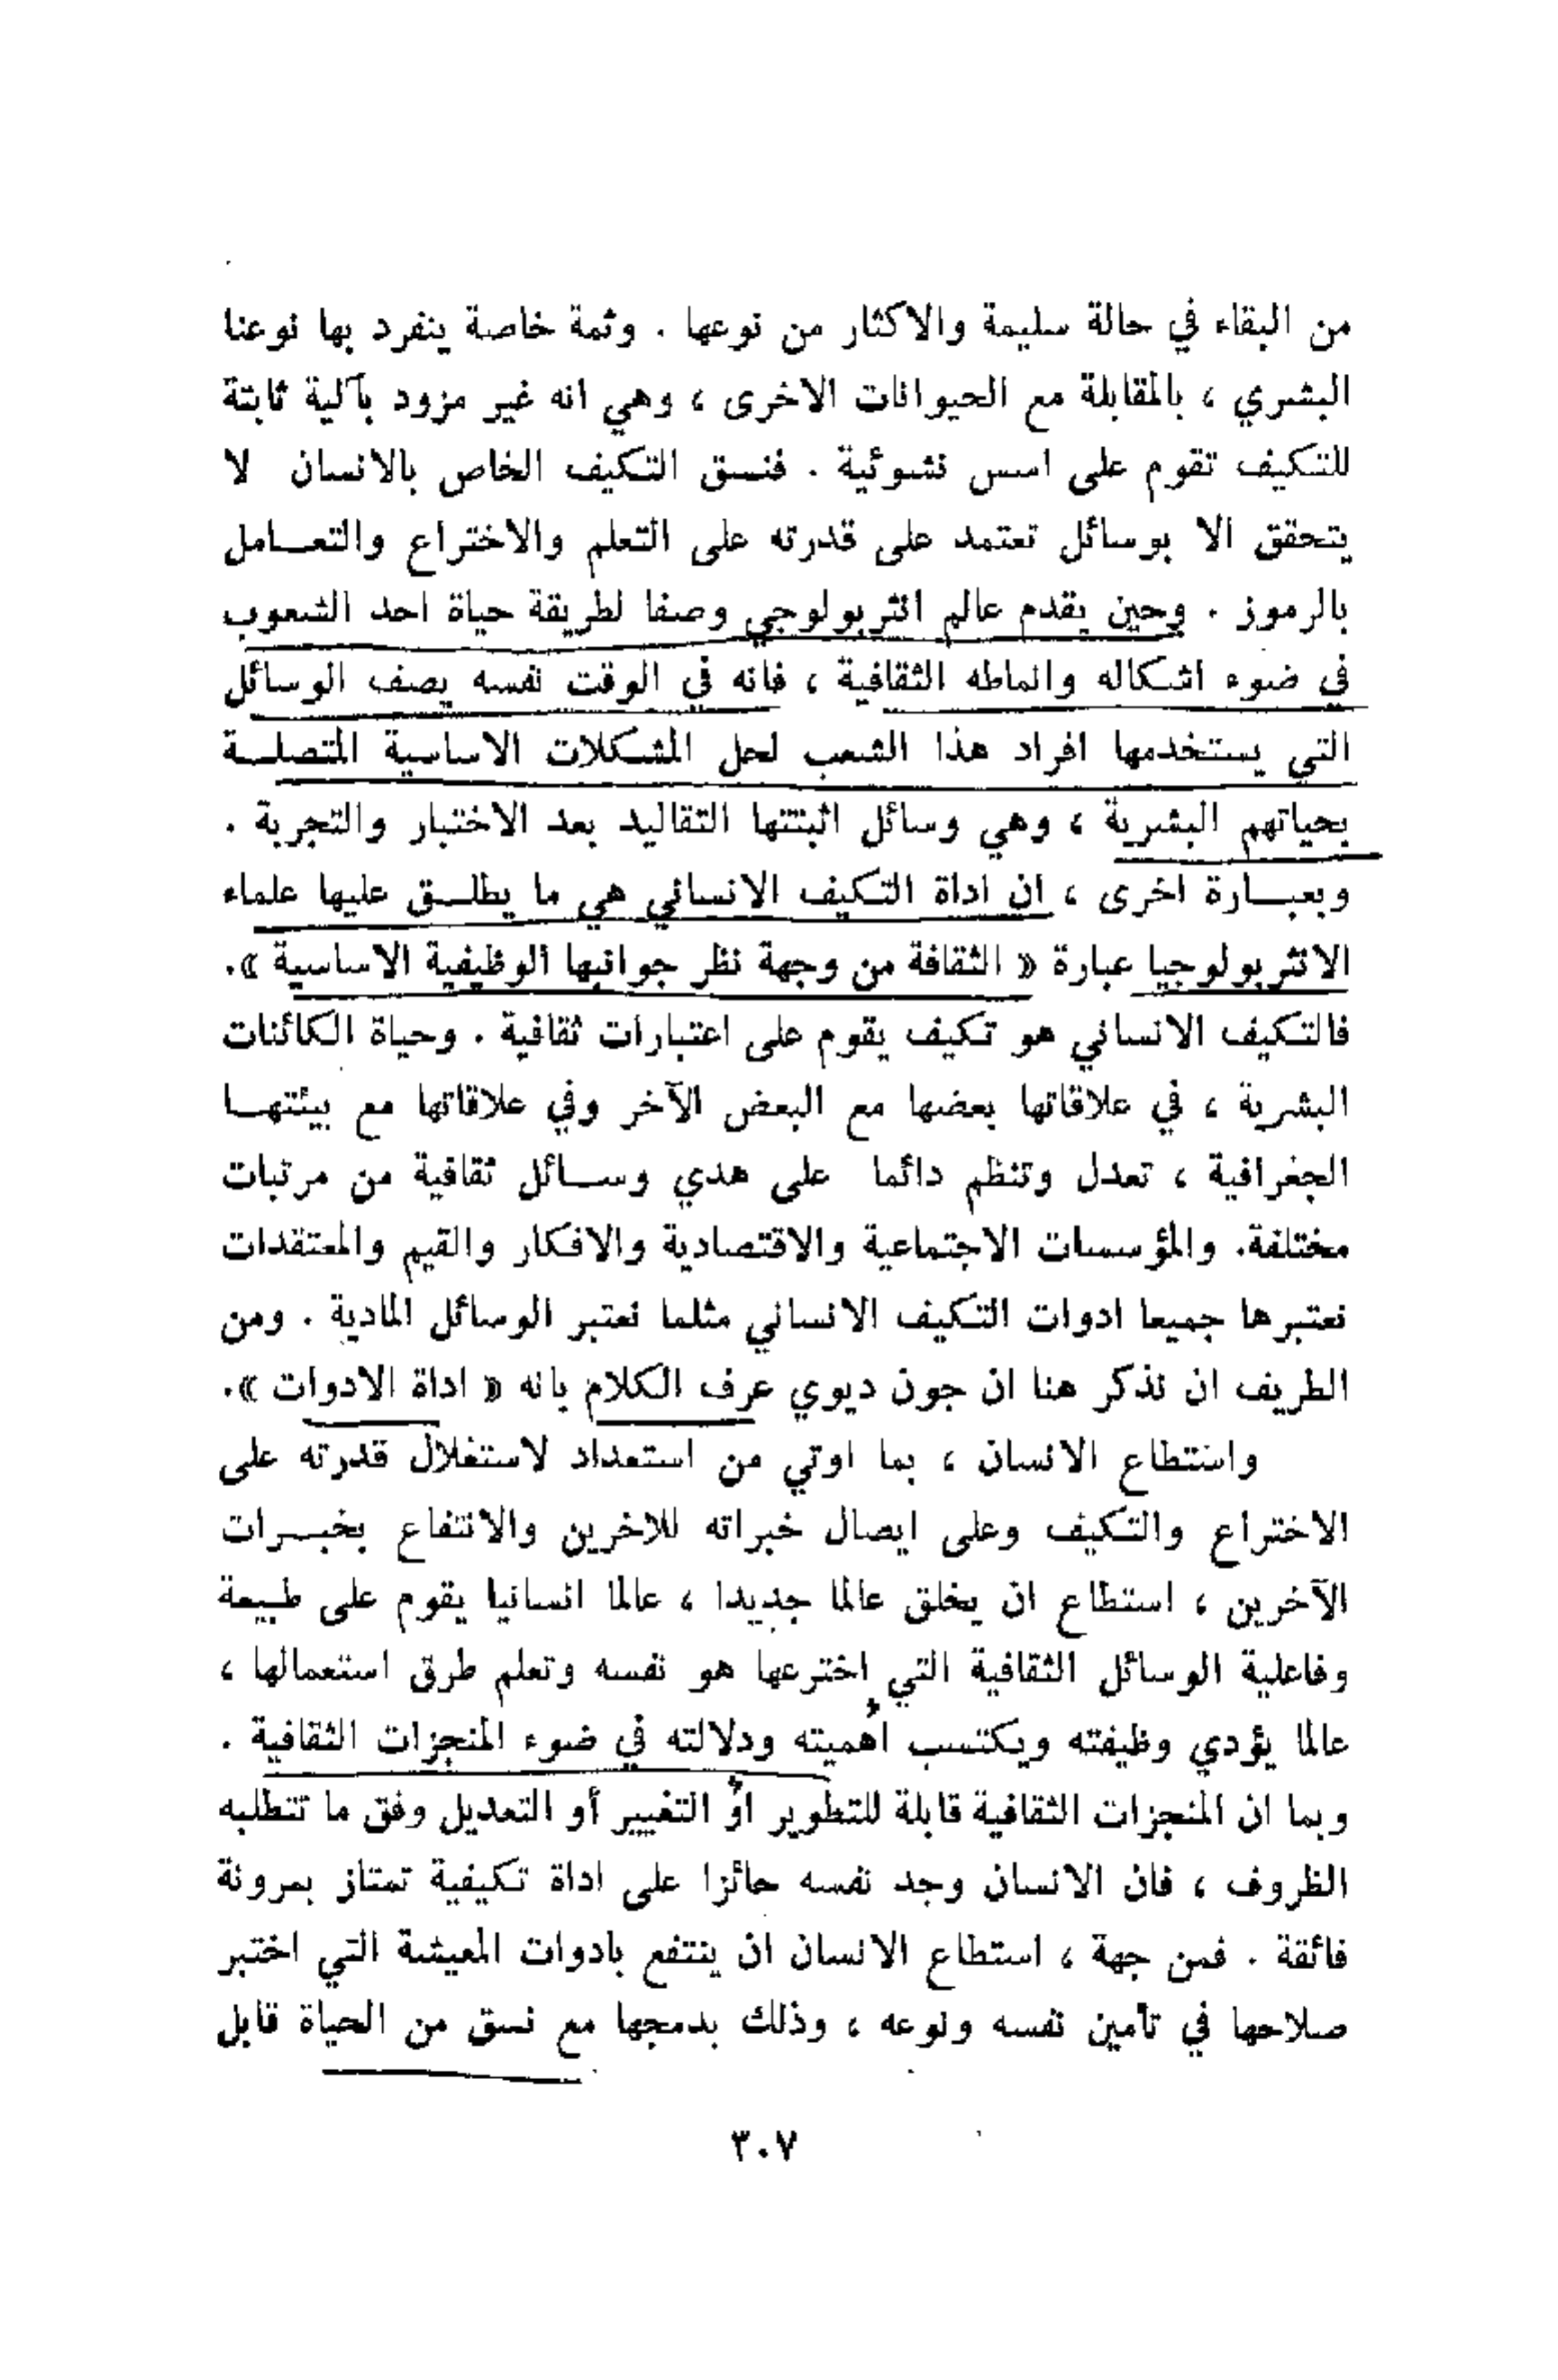 من البقاء في حالة سليمة والاكثار من نوعها . وثمة خاصة ينفرد بها نوعنا
البشري ، بالمقابلة مع الحيوانات الاخرى ، وهي انه غير مزود بآلية ثابتة
للتكيف تقوم على اسس نشوئية . فنسق التكيف الخاص بالانسان لا
يتحقق الا بوسائل تعتمد على قدرته على التعلم والاختراع والتعـامل
بالرموز . وحين يقدم عالم انثربولوجي وصفا لطريقة حياة احد الشعوب
في ضوء اشكاله وانماطه الثقافية ، فانه في الوقت نفسه يصف الوسائل
التي يستخدمها افراد هذا الشعب لحل المشكلات الاساسية المتصلـة
بحياتهم البشرية ، وهي وسائل اثبتتها التقاليد بعد الاختبار والتجربة .
وبعبـارة اخرى ، ان اداة التكيف الانساني هي ما يطلـق عليها علماء
الانثربولوجيا عبارة « الثقافة من وجهة نظر جوانبها الوظيفية الاساسية ».
فالتكيف الانساني هو تكيف يقوم على اعتبارات ثقافية . وحياة الكائنات
البشرية ، في علاقاتها بعضها مع البعض الآخر وفي علاقاتها مع بيئتهـا
الجغرافية ، تعدل وتنظم دائما على هدي وسـائل ثقافية من مرتبات
مختلفة. والمؤسسات الاجتماعية والاقتصادية والافكار والقيم والمعتقدات
نعتبرها جميعا ادوات التكيف الانساني مثلما نعتبر الوسائل المادية . ومن
الطريف ان نذكر هنا ان جون ديوي عرف الكلام بانه « اداة الادوات ».
واستطاع الانسان ، بما اوتي من استعداد لاستغلال قدرته على
الاختراع والتكيف وعلى ايصال خبراته للاخرين والانتفاع بخبـرات
الآخرين ، استطاع ان يخلق عالما جديدا ، عالما انسانيا يقوم على طبيعة
وفاعلية الوسائل الثقافية التي اخترعها هو نفسه وتعلم طرق استعمالها ،
عالما يؤدي وظيفته ويكتسب اهميته ودلالته في ضوء المنجزات الثقافية .
وبما ان المنجزات الثقافية قابلة للتطوير او التغيير أو التعديل وفق ما تتطلبه
الظروف ، فان الانسان وجد نفسه حائزا على اداة تكيفية تمتاز بمرونة
فائقة . فمن جهة ، استطاع الانسان ان ينتفع بادوات المعيشة التي اختبر
صلاحها في تأمين نفسه ونوعه ، وذلك بدمجها مع نسق من الحياة قابل
٣٠٧